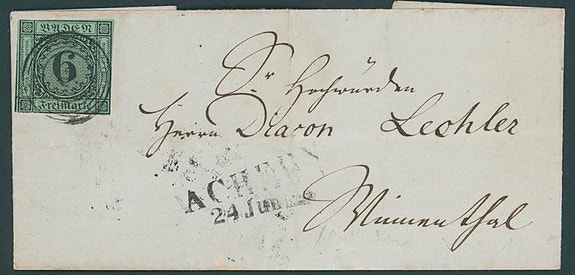 BADEN
6
Freimarke
Sr Hochwürden
Herrn Diacon Lechler
ACHERN
24 Jun
Winnenthal